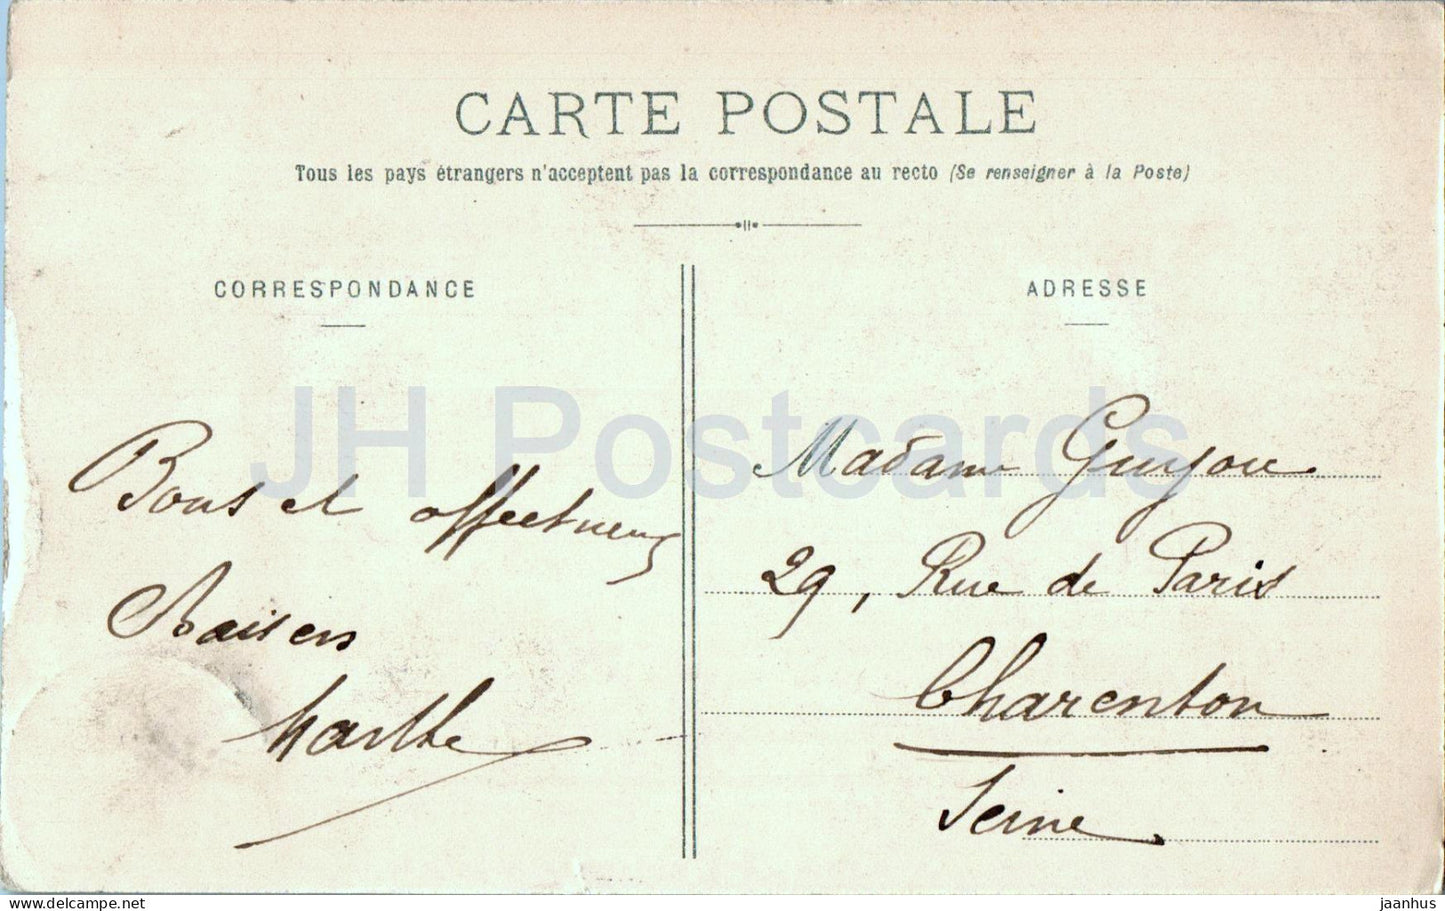 CARTE POSTALE
Tous les pays étrangers n'acceptent pas la correspondance au recto (Se renseigner à la Poste)
CORRESPONDANCE
ADRESSE
JH Postcards
Bons et affectueux
Baisers
Marthe
Madame Guyou
29, Rue de Paris
Charenton
Seine.
www.delcampe.net
jaanhus